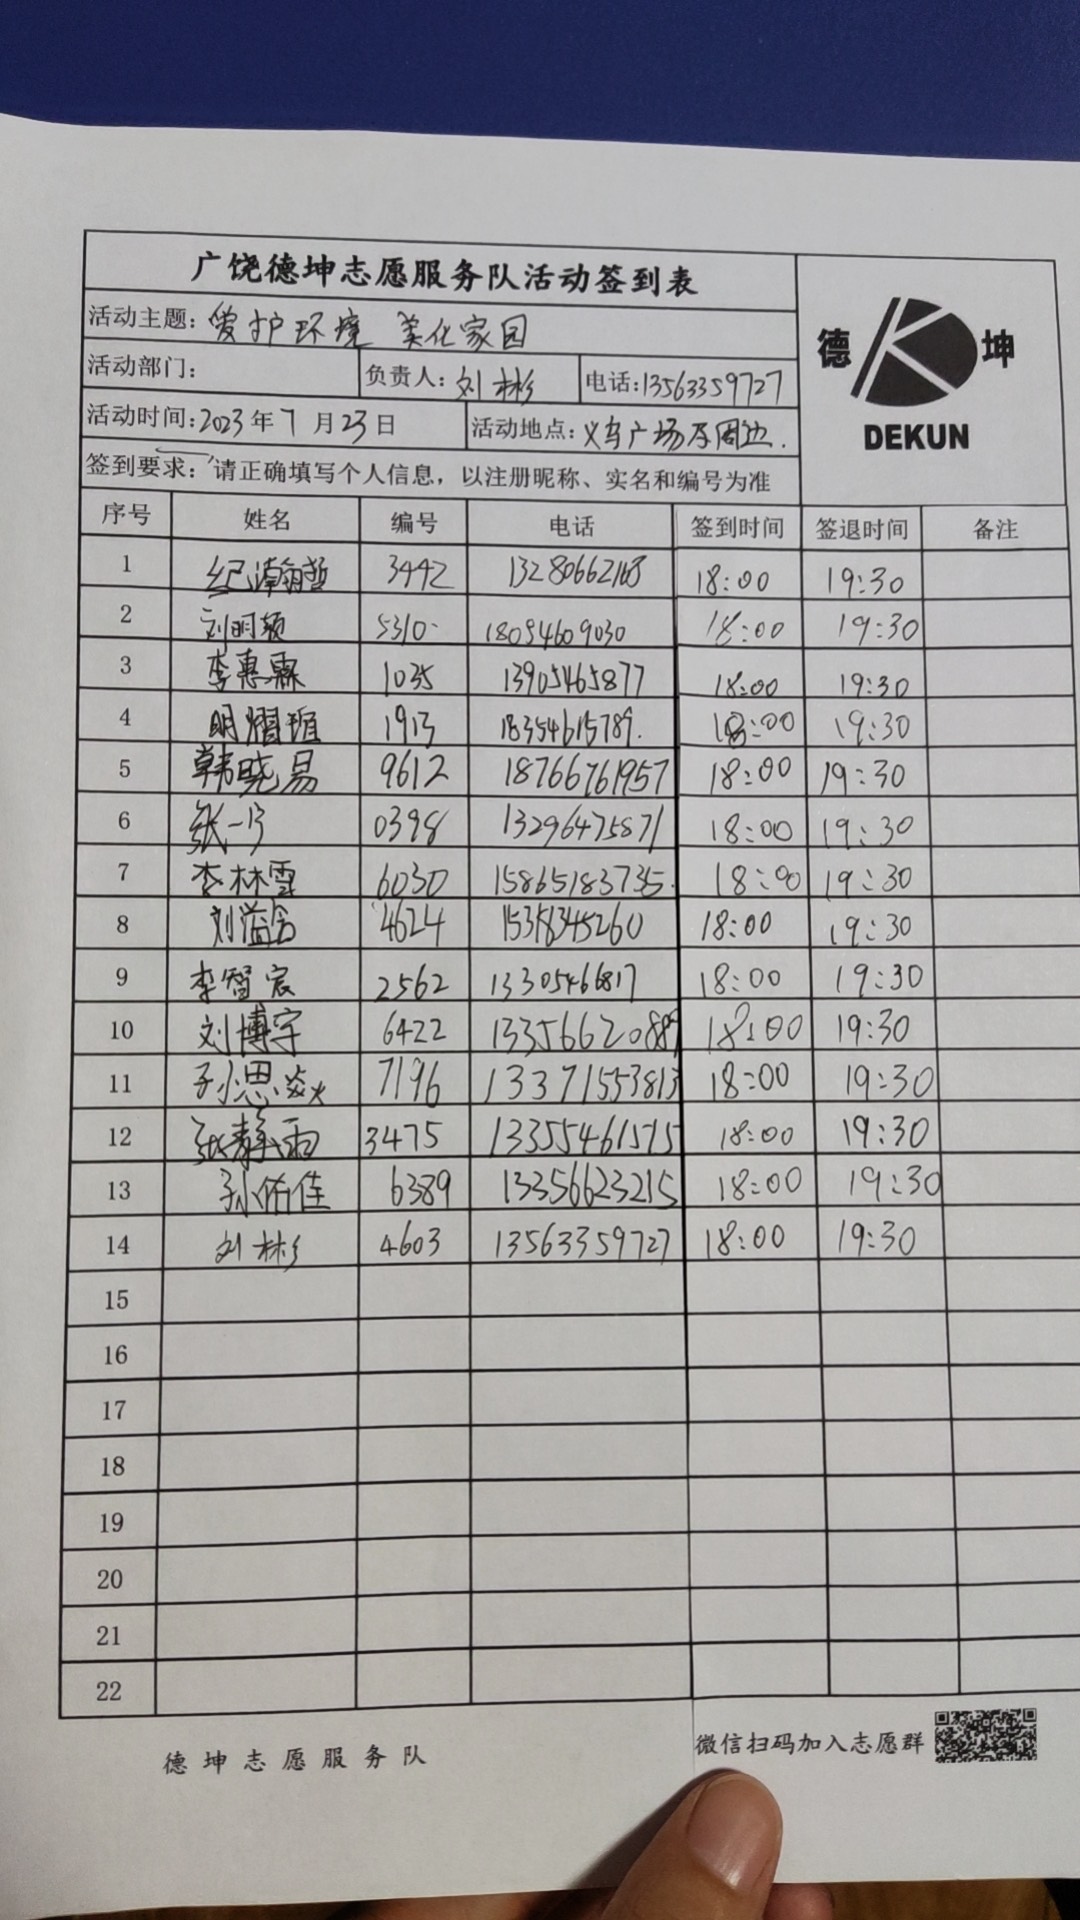 广饶德坤志愿服务队活动签到表
德 坤
DEKUN
活动主题：爱护环境 美化家园
活动部门： 负责人：刘彬 电话：13563359727
活动时间：2023年7月23日 活动地点：义乌广场及周边.
签到要求：请正确填写个人信息，以注册昵称、实名和编号为准
序号 姓名 编号 电话 签到时间 签退时间 备注
1 纪瀚哲 3442 13280662168 18:00 19:30
2 刘明颖 5310 18054609030 18:00 19:30
3 李惠霖 1035 13905465877 18:00 19:30
4 明熠瑄 1913 18354615789. 18:00 19:30
5 韩晓易 9612 18766761957 18:00 19:30
6 张一 0398 13296475871 18:00 19:30
7 李林雪 6030 15865183735. 18:00 19:30
8 刘益含 4624 15318345260 18:00 19:30
9 李智宸 2562 13305466817 18:00 19:30
10 刘博宇 6422 18:00 19:30
11 孙思焱 7196 13371553813 18:00 19:30
12 张静雨 3475 13355461515 18:00 19:30
13 孙佑佳 6389 13356623215 18:00 19:30
14 刘彬 4603 13563359727 18:00 19:30
15
16
17
18
19
20
21
22
德坤志愿服务队 微信扫码加入志愿群